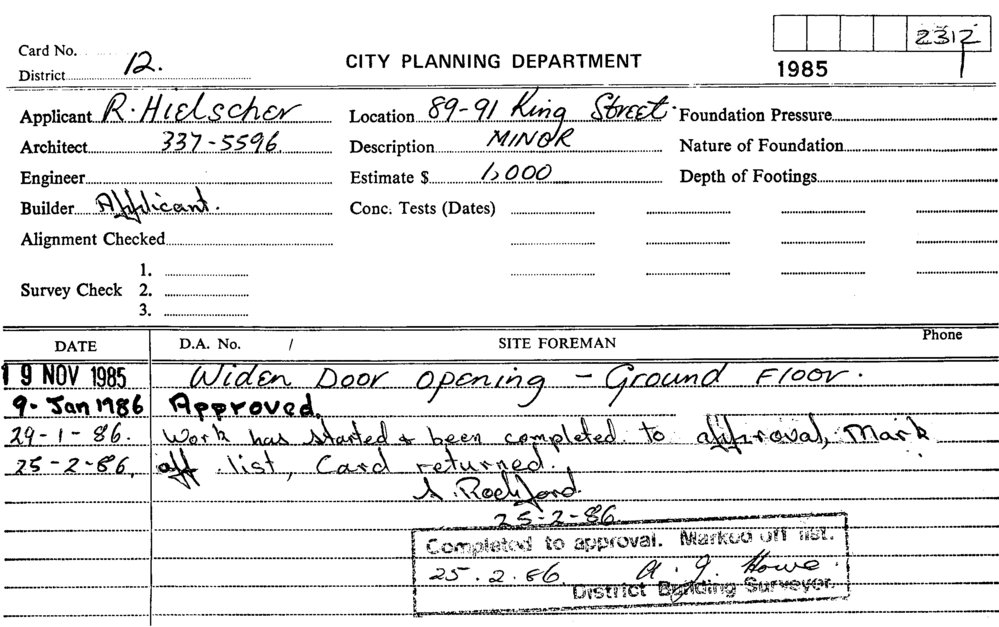 2312
Card No.
District 12.
CITY PLANNING DEPARTMENT
1985
Applicant R. Hielscher
Location 89-91 King Street.
Foundation Pressure
Architect 337-5596
Description MINOR
Nature of Foundation
Engineer
Estimate $ 1,000
Depth of Footings
Builder Applicant.
Conc. Tests (Dates)
Alignment Checked
Survey Check 1.
2.
3.
DATE D.A. No. / SITE FOREMAN Phone
19 NOV 1985 Widen Door opening - Ground Floor.
9- Jan 1986 Approved.
29-1-86. Work has started & been completed to approval, Mark
25-2-86, off list, Card returned.
A. Rochford.
25-2-86
Completed to approval. Marked off list.
25.2.86. A. J. Howe.
District Building Surveyor.